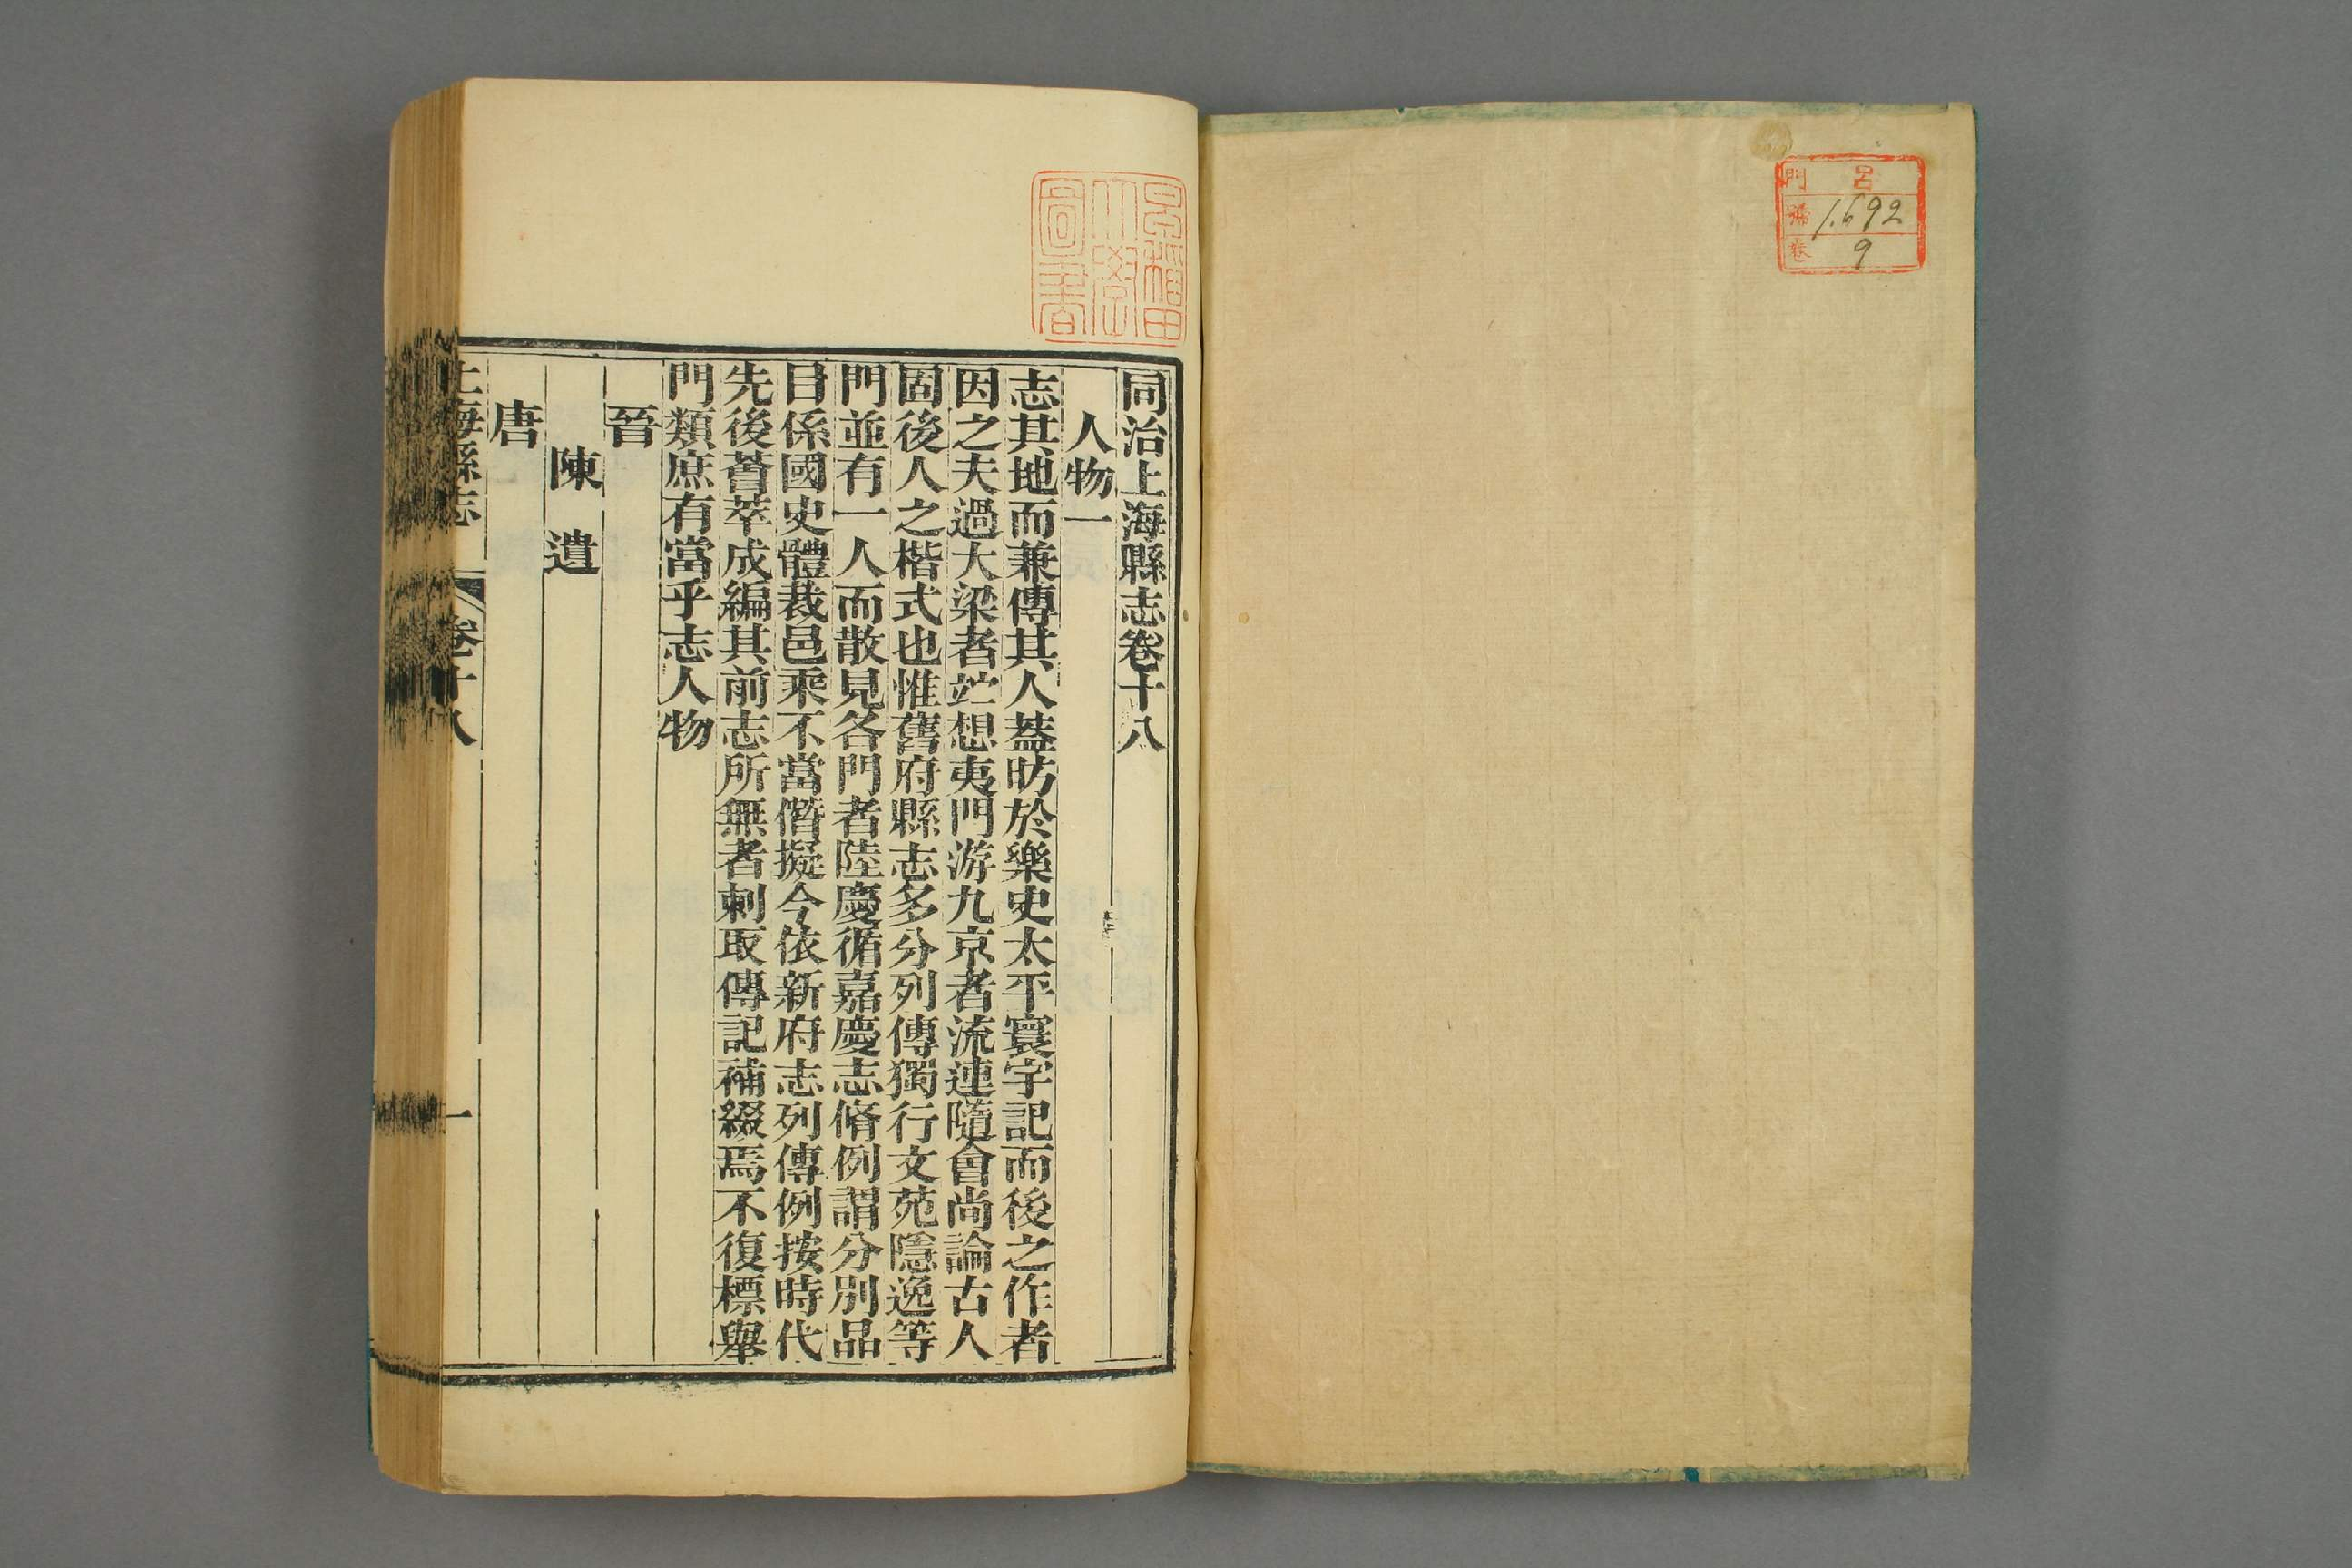 門 呂
號 1.692
卷 9
早稻田
大學
圖書
同治上海縣志卷十八
人物一
志其地而兼傳其人蓋昉於樂史太平寰宇記而後之作者
因之夫過大梁者竚想夷門游九京者流連隨會尚論古人
固後人之楷式也惟舊府縣志多分列傳獨行文苑隱逸等
門並有一人而散見各門者陸慶循嘉慶志脩例謂分別品
目係國史體裁邑乘不當僭擬今依新府志列傳例按時代
先後薈萃成編其前志所無者刺取傳記補綴焉不復標舉
門類庶有當乎志人物
晉
陳遺
唐
上海縣志 卷十八 一